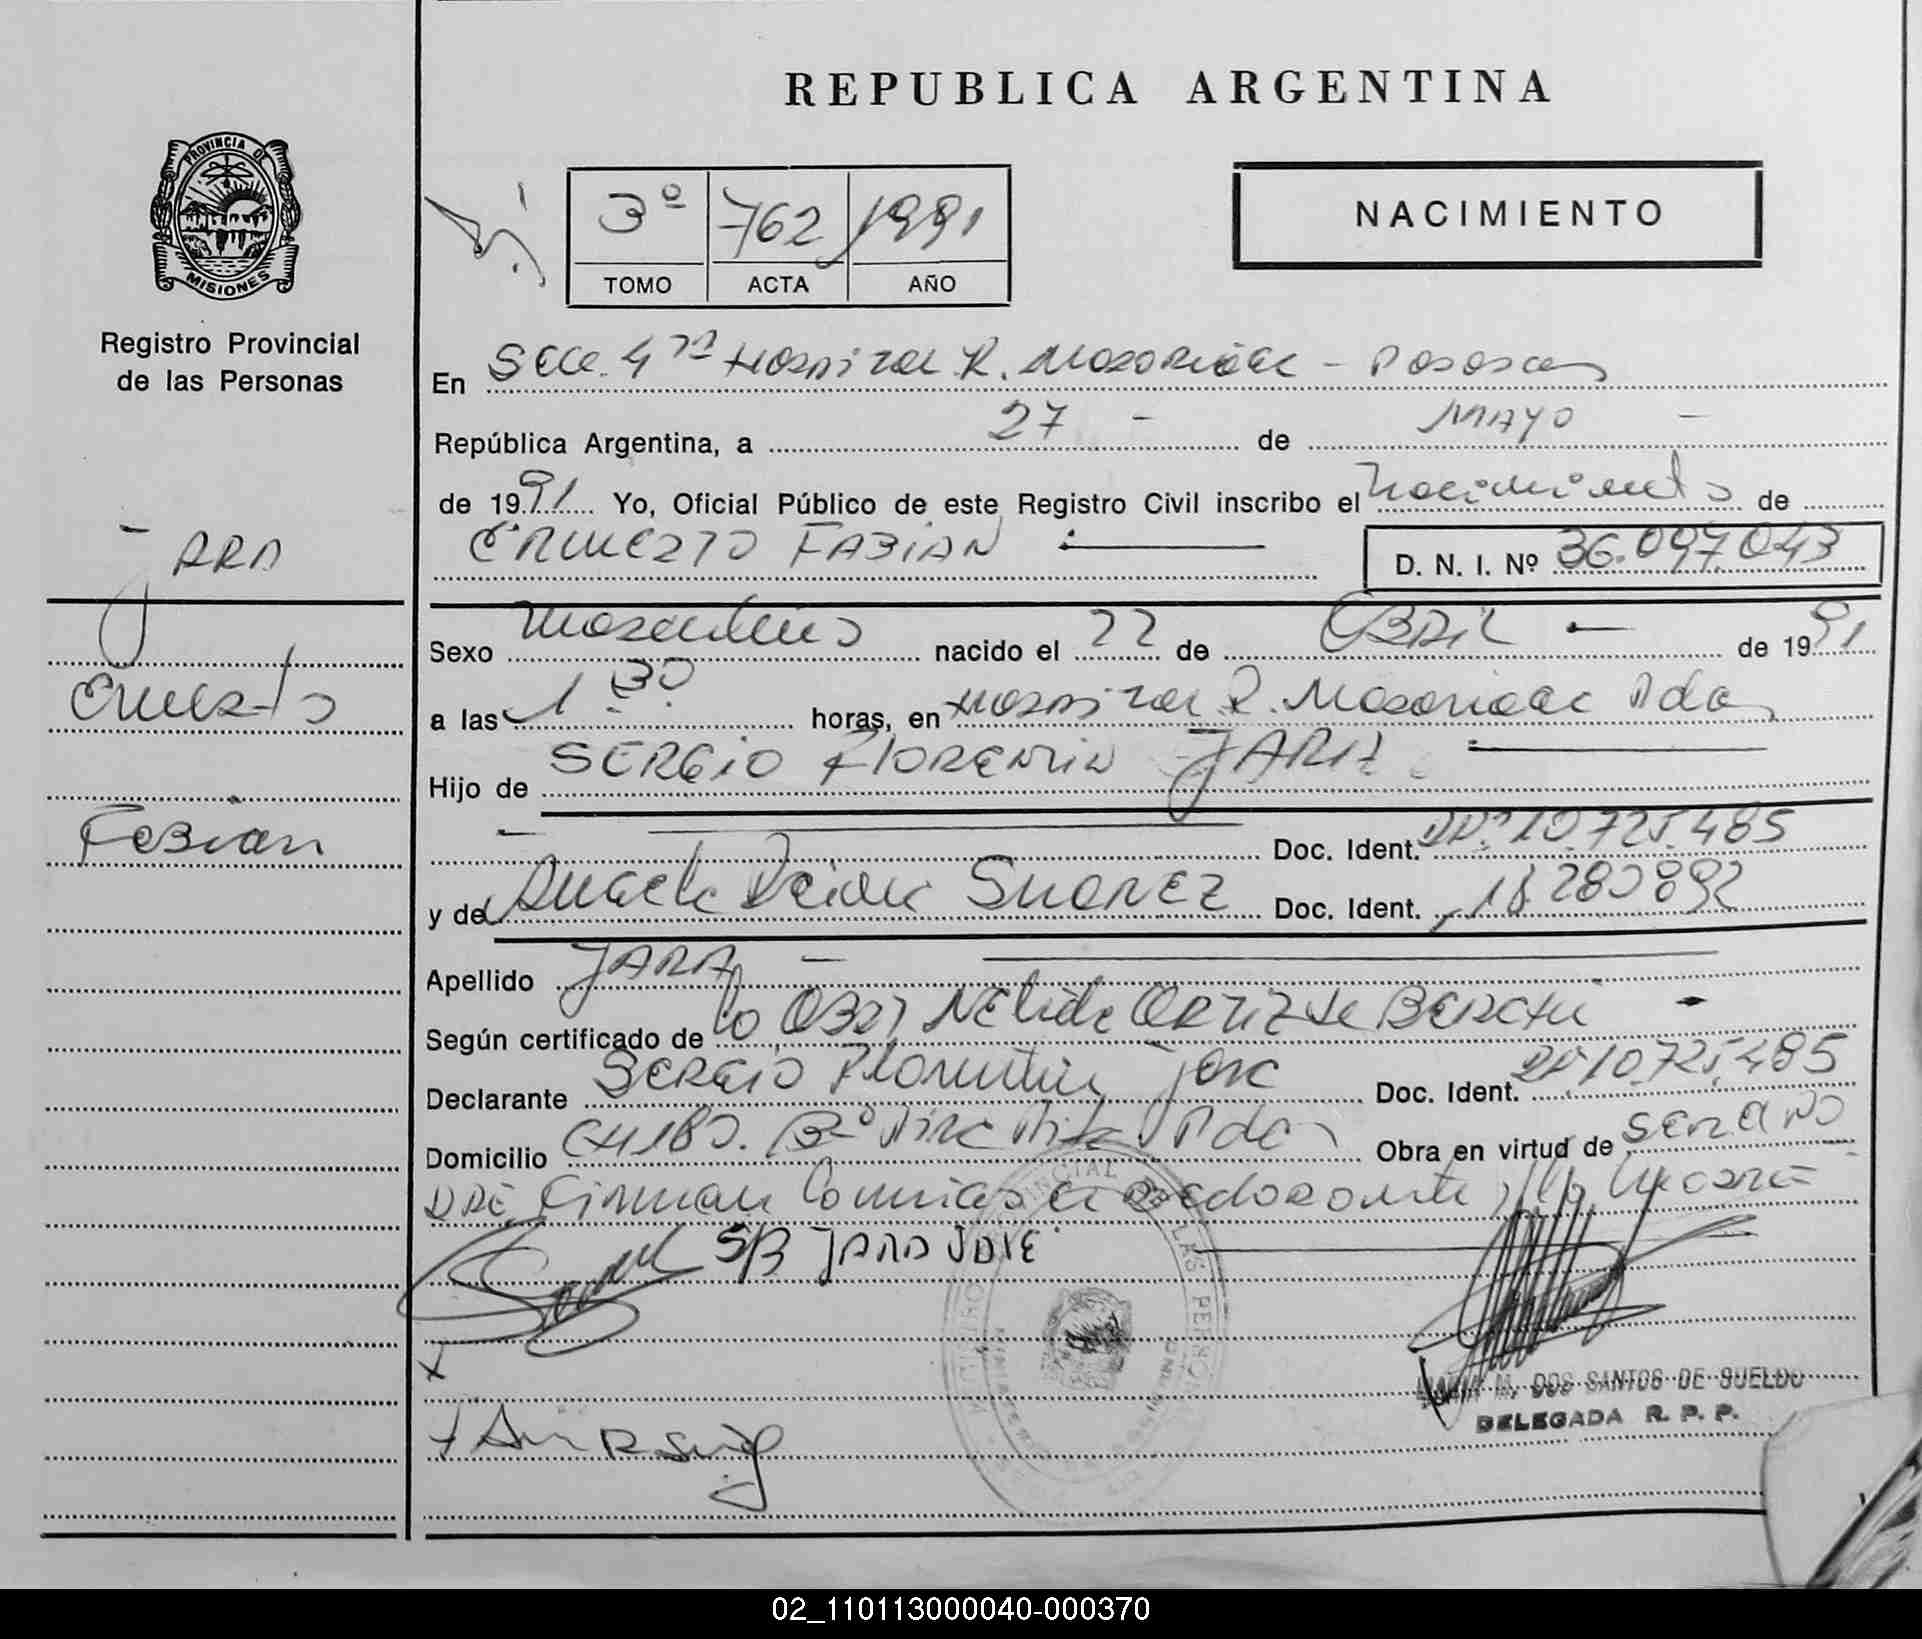 REPUBLICA ARGENTINA
PROVINCIA DE MISIONES
Registro Provincial
de las Personas
3º 762 1991
TOMO ACTA AÑO
NACIMIENTO
En Secc. 4ta Hospital R. Madariaga - Posadas
República Argentina, a 27 - de MAYO -
de 1991 Yo, Oficial Público de este Registro Civil inscribo el Nacimiento de
ERNESTO FABIAN
D. N. I. Nº 36.097.043
JARA
Ernesto
Fabian
Sexo Masculino nacido el 22 de ABRIL de 1991
a las 1 30 horas, en Hospital R. Madariaga Pdas
Hijo de SERGIO FLORENTIN JARA
Doc. Ident. DNI 10.725.485
y de Angela SUAREZ Doc. Ident. 18.280892
Apellido JARA
Según certificado de la Obst Nelida ORTIZ de
Declarante Sergio Florentin Jara Doc. Ident. 10.725.485
Domicilio CH 180. Bº Pdas Obra en virtud de ser el
padre Firman conmigo el declarante y la madre
S/B JARA VALE
MARIA M. DOS SANTOS DE SUELDO
DELEGADA R. P. P.
02_110113000040-000370